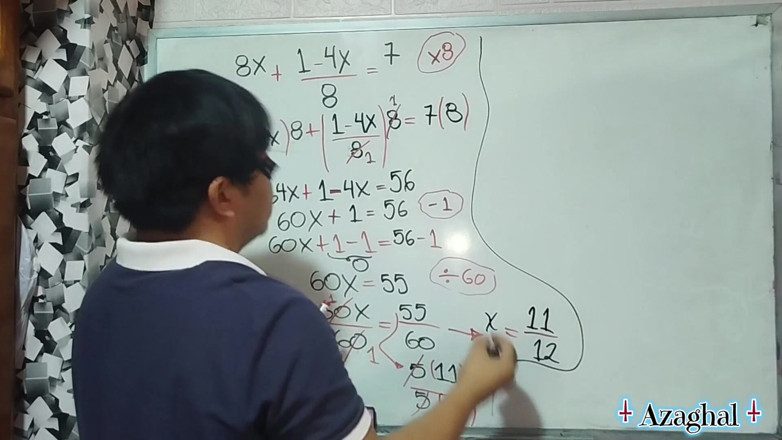 8x + (1-4x)/8 = 7 ×8
x)8 + ((1-4x)/8 1) 8 1 = 7(8)
64x + 1-4x = 56
60x + 1 = 56 -1
60x + 1 - 1 = 56 - 1
0
60x = 55 ÷60
60x/60 1 = 55/60 → x = 11/12
5(11
5
Azaghal